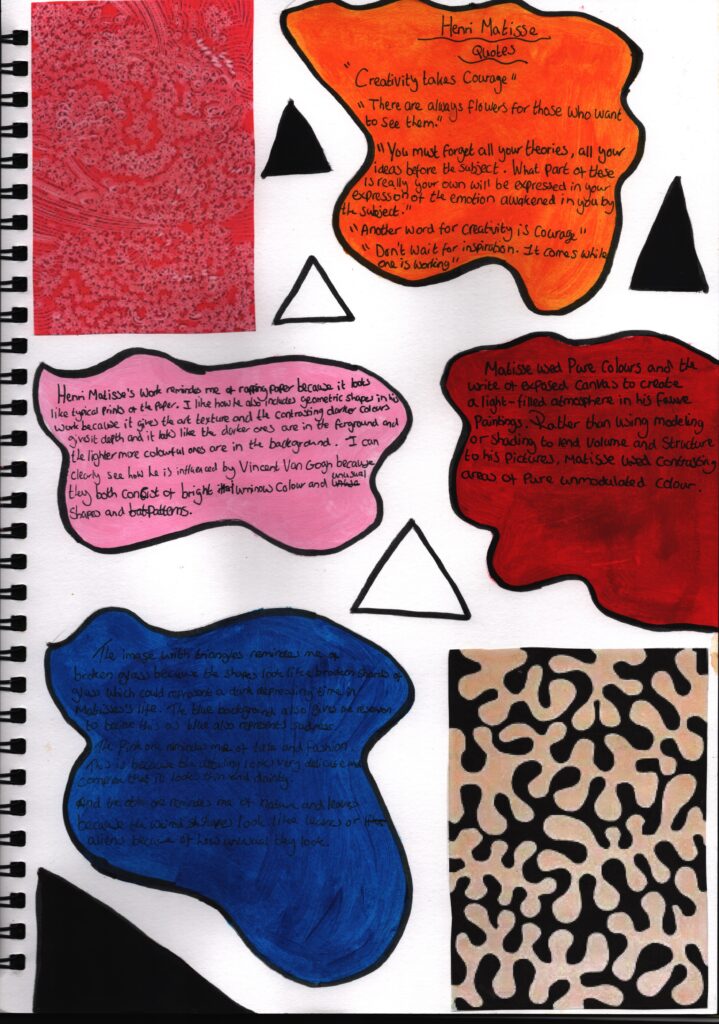 Henri Matisse
Quotes
"Creativity takes Courage"
"There are always flowers for those who want
to see them."
"You must forget all your theories, all your
ideas before the subject. What part of these
is really your own will be expressed in your
expression of the emotion awakened in you by
the subject."
"Another word for creativity is Courage"
"Don't wait for inspiration. It comes while
one is working"
Henri Matisse's work reminds me of rapping paper because it looks
like typical prints of the paper. I like how he also includes geometric shapes in his
work because it gives the art texture and the contrasting darker colours
gives it depth and it looks like the darker ones are in the forground and
the lighter more colourful ones are in the background. I can
clearly see how he is influenced by Vincent Van Gogh because
they both consist of bright luminow Colour and unusual
Shapes and Patterns.
Matisse used Pure Colours and the
write of exposed Canvas to create
a light-filled atmosphere in his Fauve
Paintings. Rather than using modeling
or shading to lend Volume and Structure
to his pictures, Matisse used Contrasting
areas of Pure unmodulated colour.
The image with triangles reminds me of
broken glass because the shapes look like broken shards of
glass which could represent a dark depressing time in
Matisse's life. The blue background also gives me
to this as blue also represents sadness.
The Pink one reminds me of and fashion.
This is because the detailing looks very delicate and
complex that it looks thin and dainty.
And the other one reminds me of Nature and leaves
because the weird shapes look like leaves or
aliens because of how unusual they look.